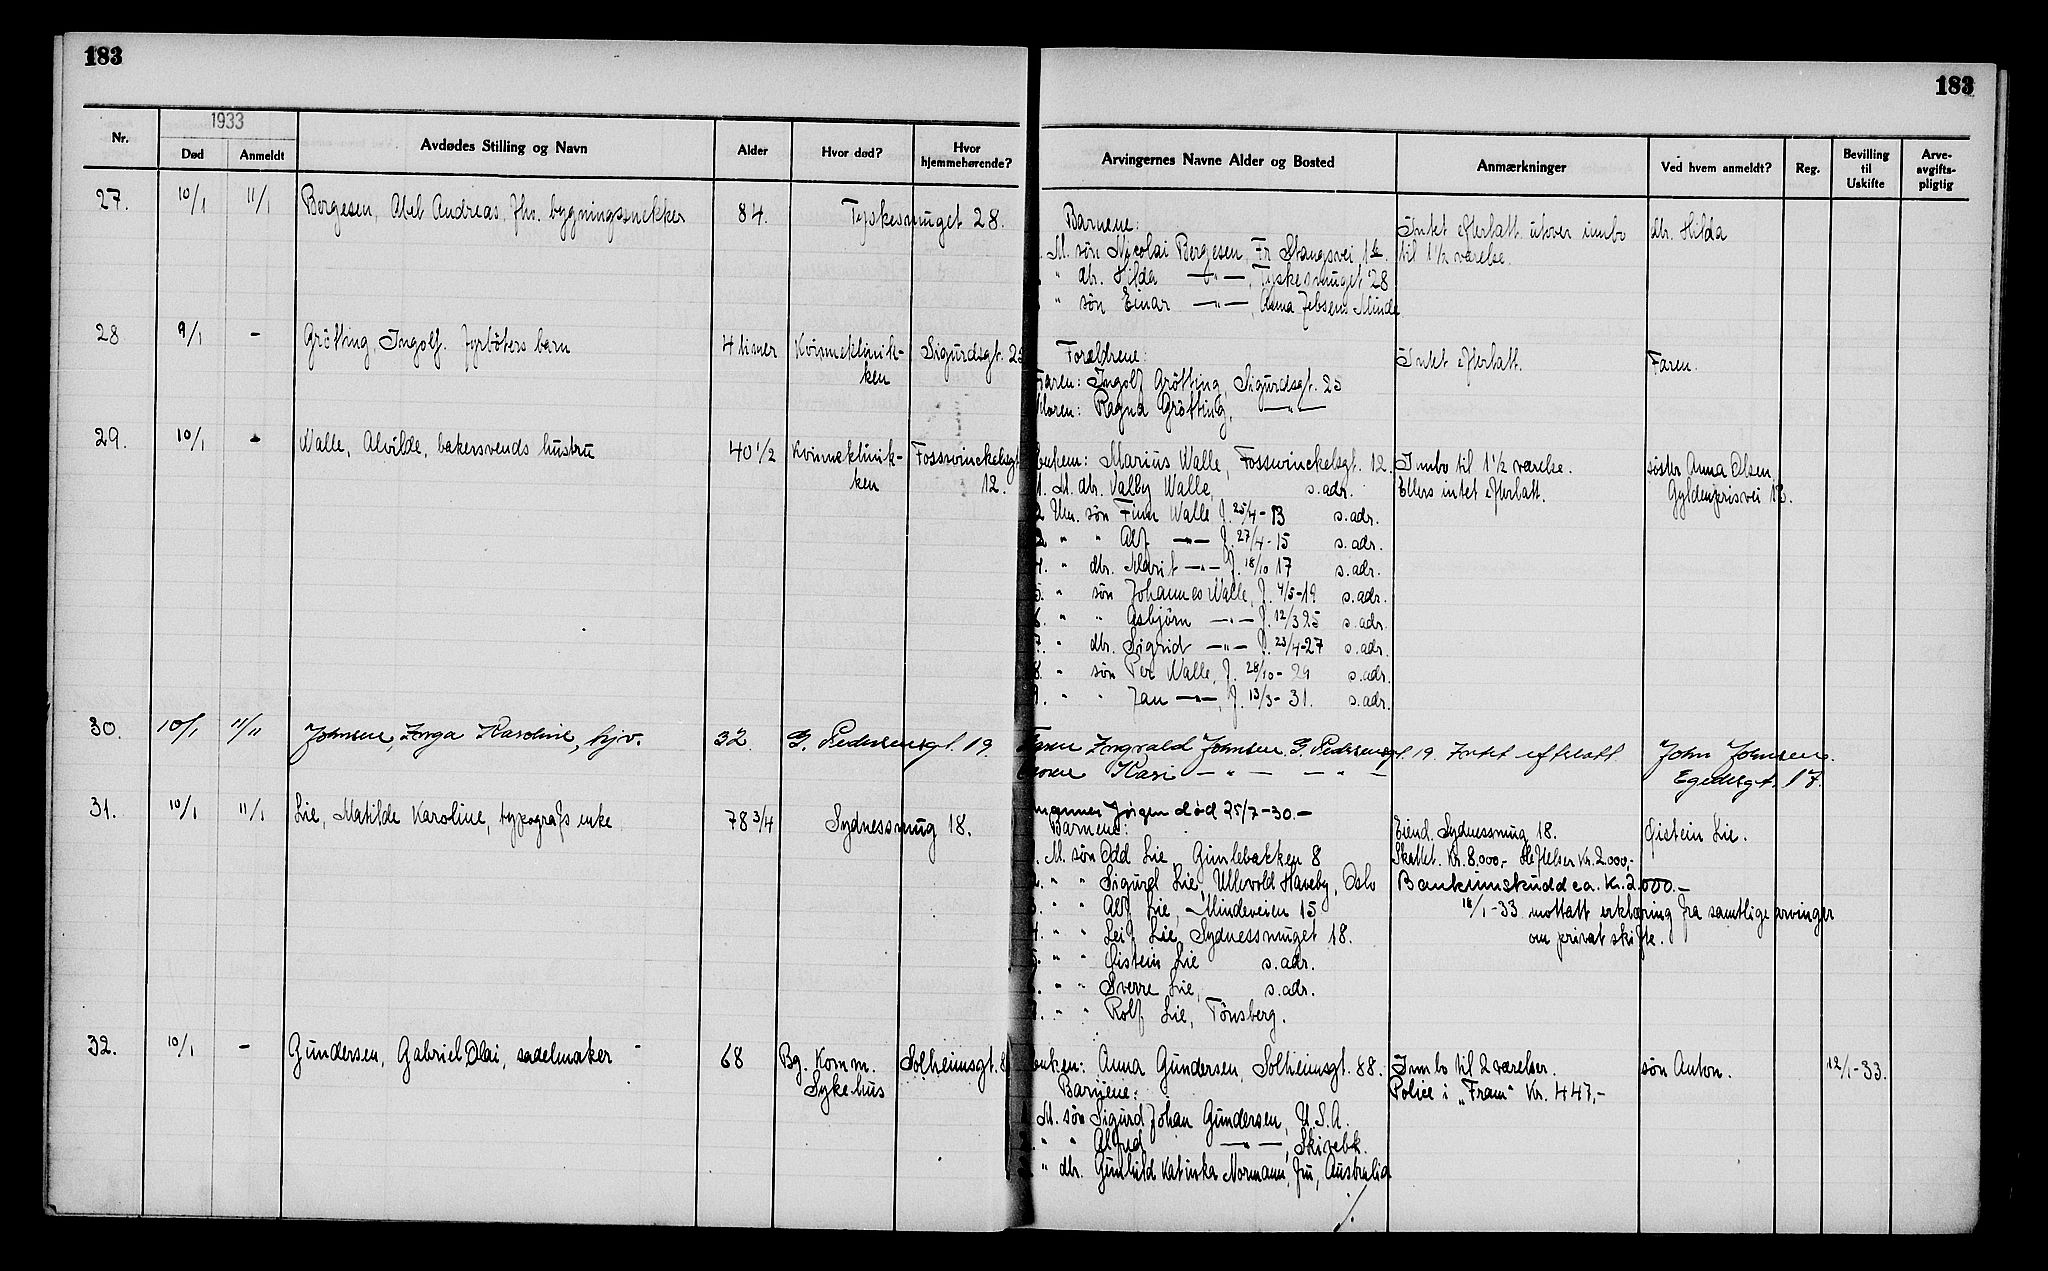 183
183
1933
Nr.
Død
Anmeldt
Avdødes Stilling og Navn
Alder
Hvor død?
Hvor
hjemmehørende?
Arvingernes Navne Alder og Bosted
Anmærkninger
Ved hvem anmeldt?
Reg.
Bevilling
til
Uskifte
Arve-
avgifts-
pligtig
27. 10/1 11/1 Børgesen, Abel Andreas, fhv. bygningssnekker 84. Tyskesmuget 28.
Barnene: Intet efterlatt utover innbo dtr. Hilda
M. søn Nicolai Børgesen, Fr. Stangsvei til 1 1/2 værelse.
" dtr. Hilda —"—, Tyskesmuget 28
" søn Einar —"—, Minde
28 9/1 - Grötting, Ingolf. fyrbøters barn 4 timer Kvinneklinik-
ken
Sigurdsgt. 25
Foreldrene: Intet efterlatt. Faren.
Faren: Ingolf Grötting, Sigurdsgt. 25
Moren: Ragna Grötting, —"—
29. 10/1 - Walle, Alvilde, bakersvends hustru 40 1/2 Kvinneklinik-
ken
Fosswinckelsgt.
12.
Enkem: Marius Walle, Fosswinckelsgt. 12. Innbo til 1 1/2 værelse. søster Anna Olsen,
1. M. dtr. Valby Walle, s. adr. Ellers intet efterlatt. Gyldenprisvei 12.
2 Um. søn Finn Walle f. 25/4-13 s. adr.
3 " " Alf —"— f. 27/4-15 s. adr.
4. " dtr. Marit —"— f. 18/10 17 s. adr.
5. " søn Johannes Walle, f. 4/5-19 s. adr.
6. " " Asbjørn —"— f. 12/3 25 s. adr.
7. " dtr. Sigrid —"— f. 23/4-27 s. adr.
8. " søn Per Walle, f. 28/10-29 s. adr.
9. " " Jan —"—, f. 13/3-31. s. adr.
30. 10/1 11/11 Johnsen, Inga Karoline, hjv. 32. G. Pedersensgt. 19.
Faren Ingvald Johnsen. G. Pedersensgt. 19. Intet efterlatt John Johnsen.
Moren Kari —"— —"— Egedesgt. 17.
31. 10/1 11/1 Lie, Matilde Karoline, typografs enke 78 3/4 Sydnessmug 18.
Jørgen død 25/7-30.-
Barnene: Eiend. Sydnessmug 18. Øistein Lie.
M. søn Odd Lie, Gimlebakken 8 Skattet. Kr. 8.000,- Heftelser Kr. 2.000,-
2. " " Sigurd Lie, Ullevold Haveby, Oslo Bankinnskudd ca. Kr. 2.000.-
3. " " Alf Lie, Mindeveien 15 18/1-33 mottatt erklæring fra samtlige arvinger
4. " " Leif Lie, Sydnessmuget 18. om privat skifte.
5. " " Øistein Lie s. adr.
" " Sverre Lie, s. adr.
7. " " Rolf Lie, Tönsberg.
32. 10/1 - Gundersen, Gabriel Olai, sadelmaker 68 Bg. Komm.
Sykehus
Solheimsgt. 88
Enken: Anna Gundersen, Solheimsgt. 88. Innbo til 2 værelser. søn Anton. 12/1-33.
Barnene: Police i „Fram" Kr. 447,-
M. søn Sigurd Johan Gundersen, U.S.A.
" " Alfred —"—, Skivebk.
" dtr. Gunhild Katinka Normann, fru, Australia
./.